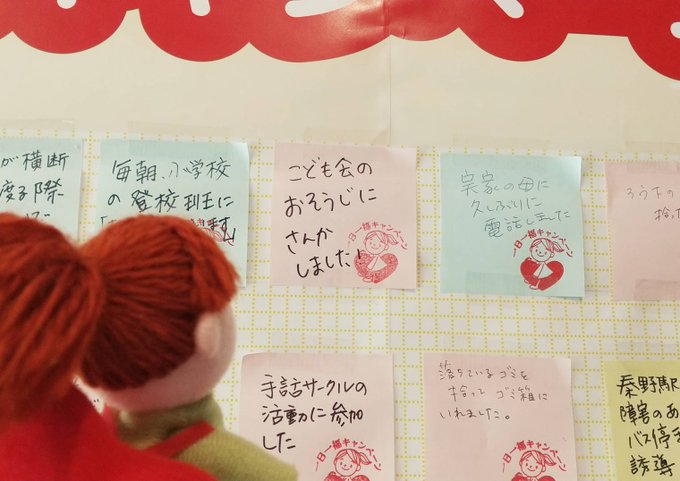 が横断
度る際
毎朝、小学校
の登校班に
ます」
こども会の
おそうじに
さんか
しました!
一日一福キャンペーン
実家の母に
久しぶりに
電話しました
一日一福キャンペーン
ろう下の
拾った
手話サークルの
活動に参加
した
一日一福キャンペーン
落ちているゴミを
拾って ゴミ箱に
いれました。
一日一福キャンペーン
秦野駅
障害のあ
バス停ま
誘導